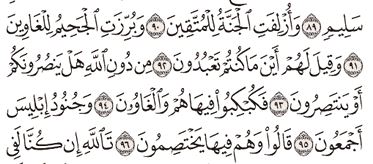 سَلِيمٍ ٨٩ وَأُزْلِفَتِ الْجَنَّةُ لِلْمُتَّقِينَ ٩٠ وَبُرِّزَتِ الْجَحِيمُ لِلْغَاوِينَ
٩١ وَقِيلَ لَهُمْ أَيْنَ مَا كُنتُمْ تَعْبُدُونَ ٩٢ مِن دُونِ اللَّهِ هَلْ يَنصُرُونَكُمْ
أَوْ يَنتَصِرُونَ ٩٣ فَكُبْكِبُوا فِيهَا هُمْ وَالْغَاوُونَ ٩٤ وَجُنُودُ إِبْلِيسَ
أَجْمَعُونَ ٩٥ قَالُوا وَهُمْ فِيهَا يَخْتَصِمُونَ ٩٦ تَاللَّهِ إِن كُنَّا لَفِي